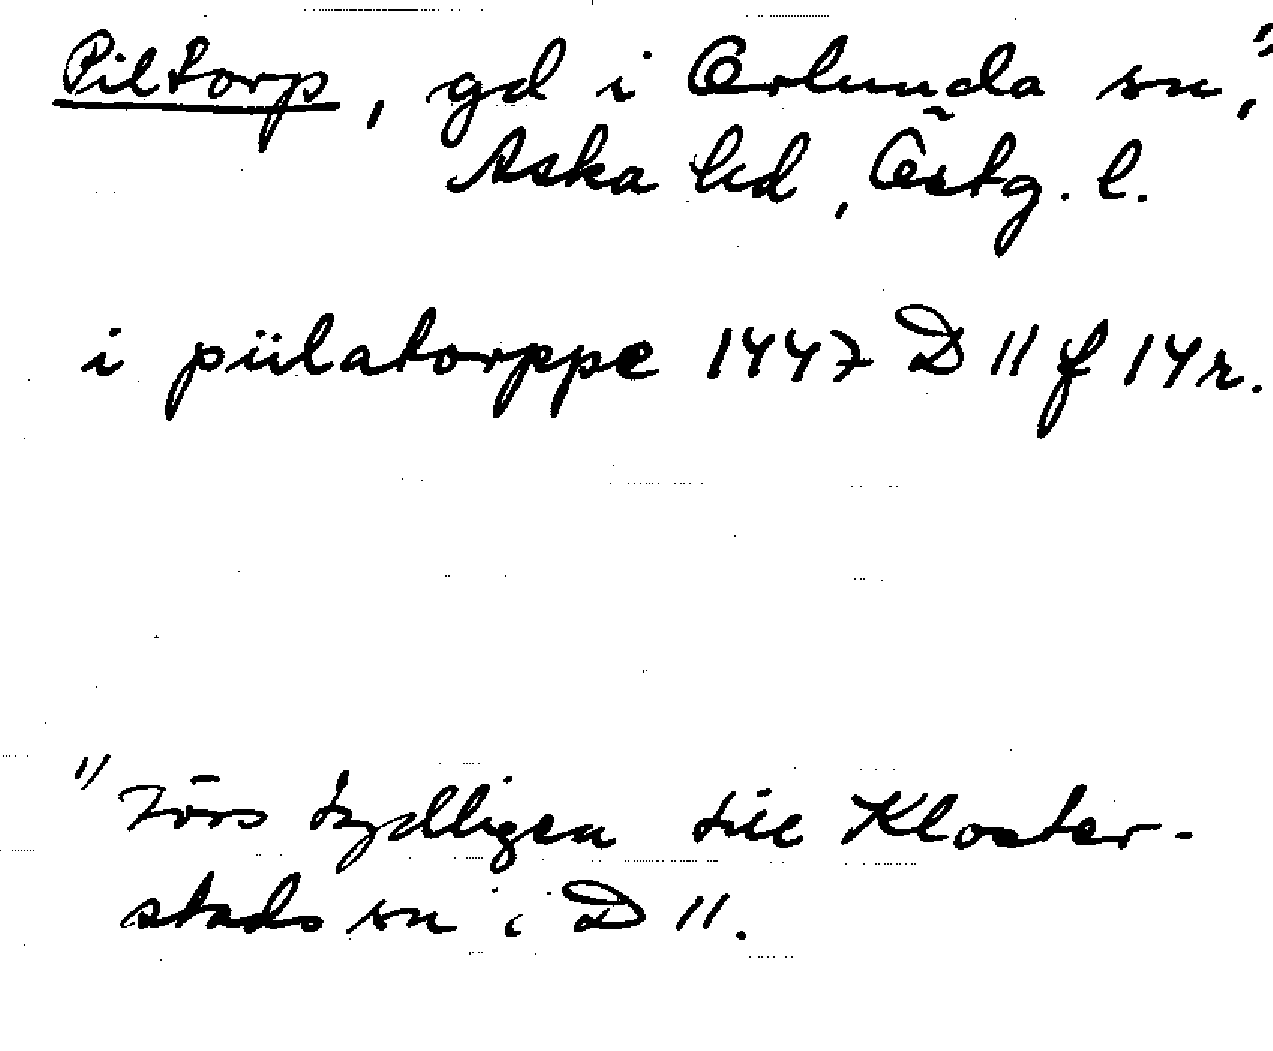 Piltorp, gd i Orlunda sn, "
Aska hd, Östg. l.
i piilatorppe 1447 D 11 f 14 r.
" Förs tydligen till Kloster-
stads sn i D 11.